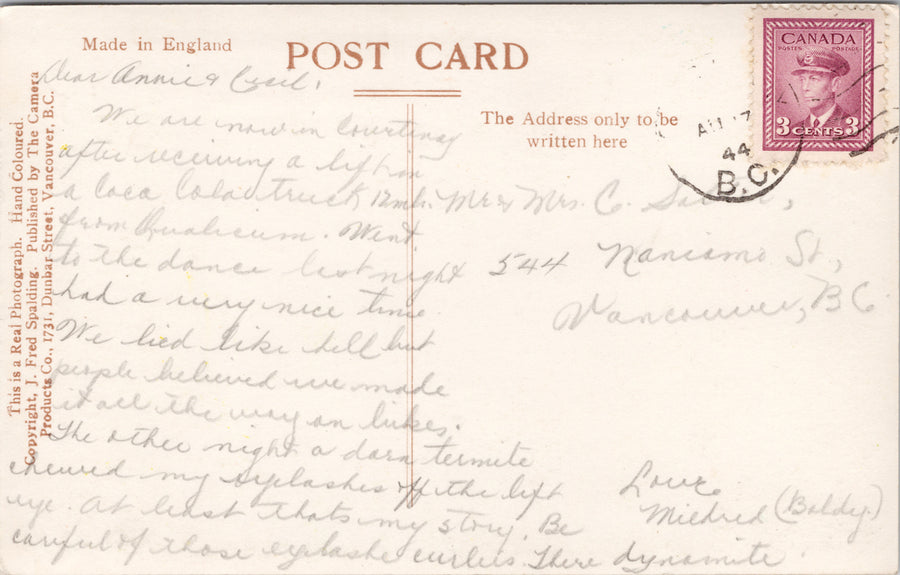 Made in England
POST CARD
The Address only to be
written here
CANADA
POSTES POSTAGE
3 CENTS 3
AU 17
44
B.C.
This is a Real Photograph. Hand Coloured.
Copyright, J. Fred Spalding. Published by The Camera
Products Co., 1731, Dunbar Street, Vancouver, B.C.
Dear Annie & Cecil,
We are now in Courtenay
after receiving a lift in
a Coca Cola truck 12 mls.
from Qualicum. Went
to the dance last night
had a very nice time
We lied like hell but
people believed we made
it all the way on bikes.
The other night a darn termite
chewed my eyelashes off the left
eye. At least thats my story. Be
careful of those eyelashe curlers. There dynamite
Mr & Mrs. C.
544 Naniamo St.,
Vancouver, B C.
Love
Mildred (Baldy)